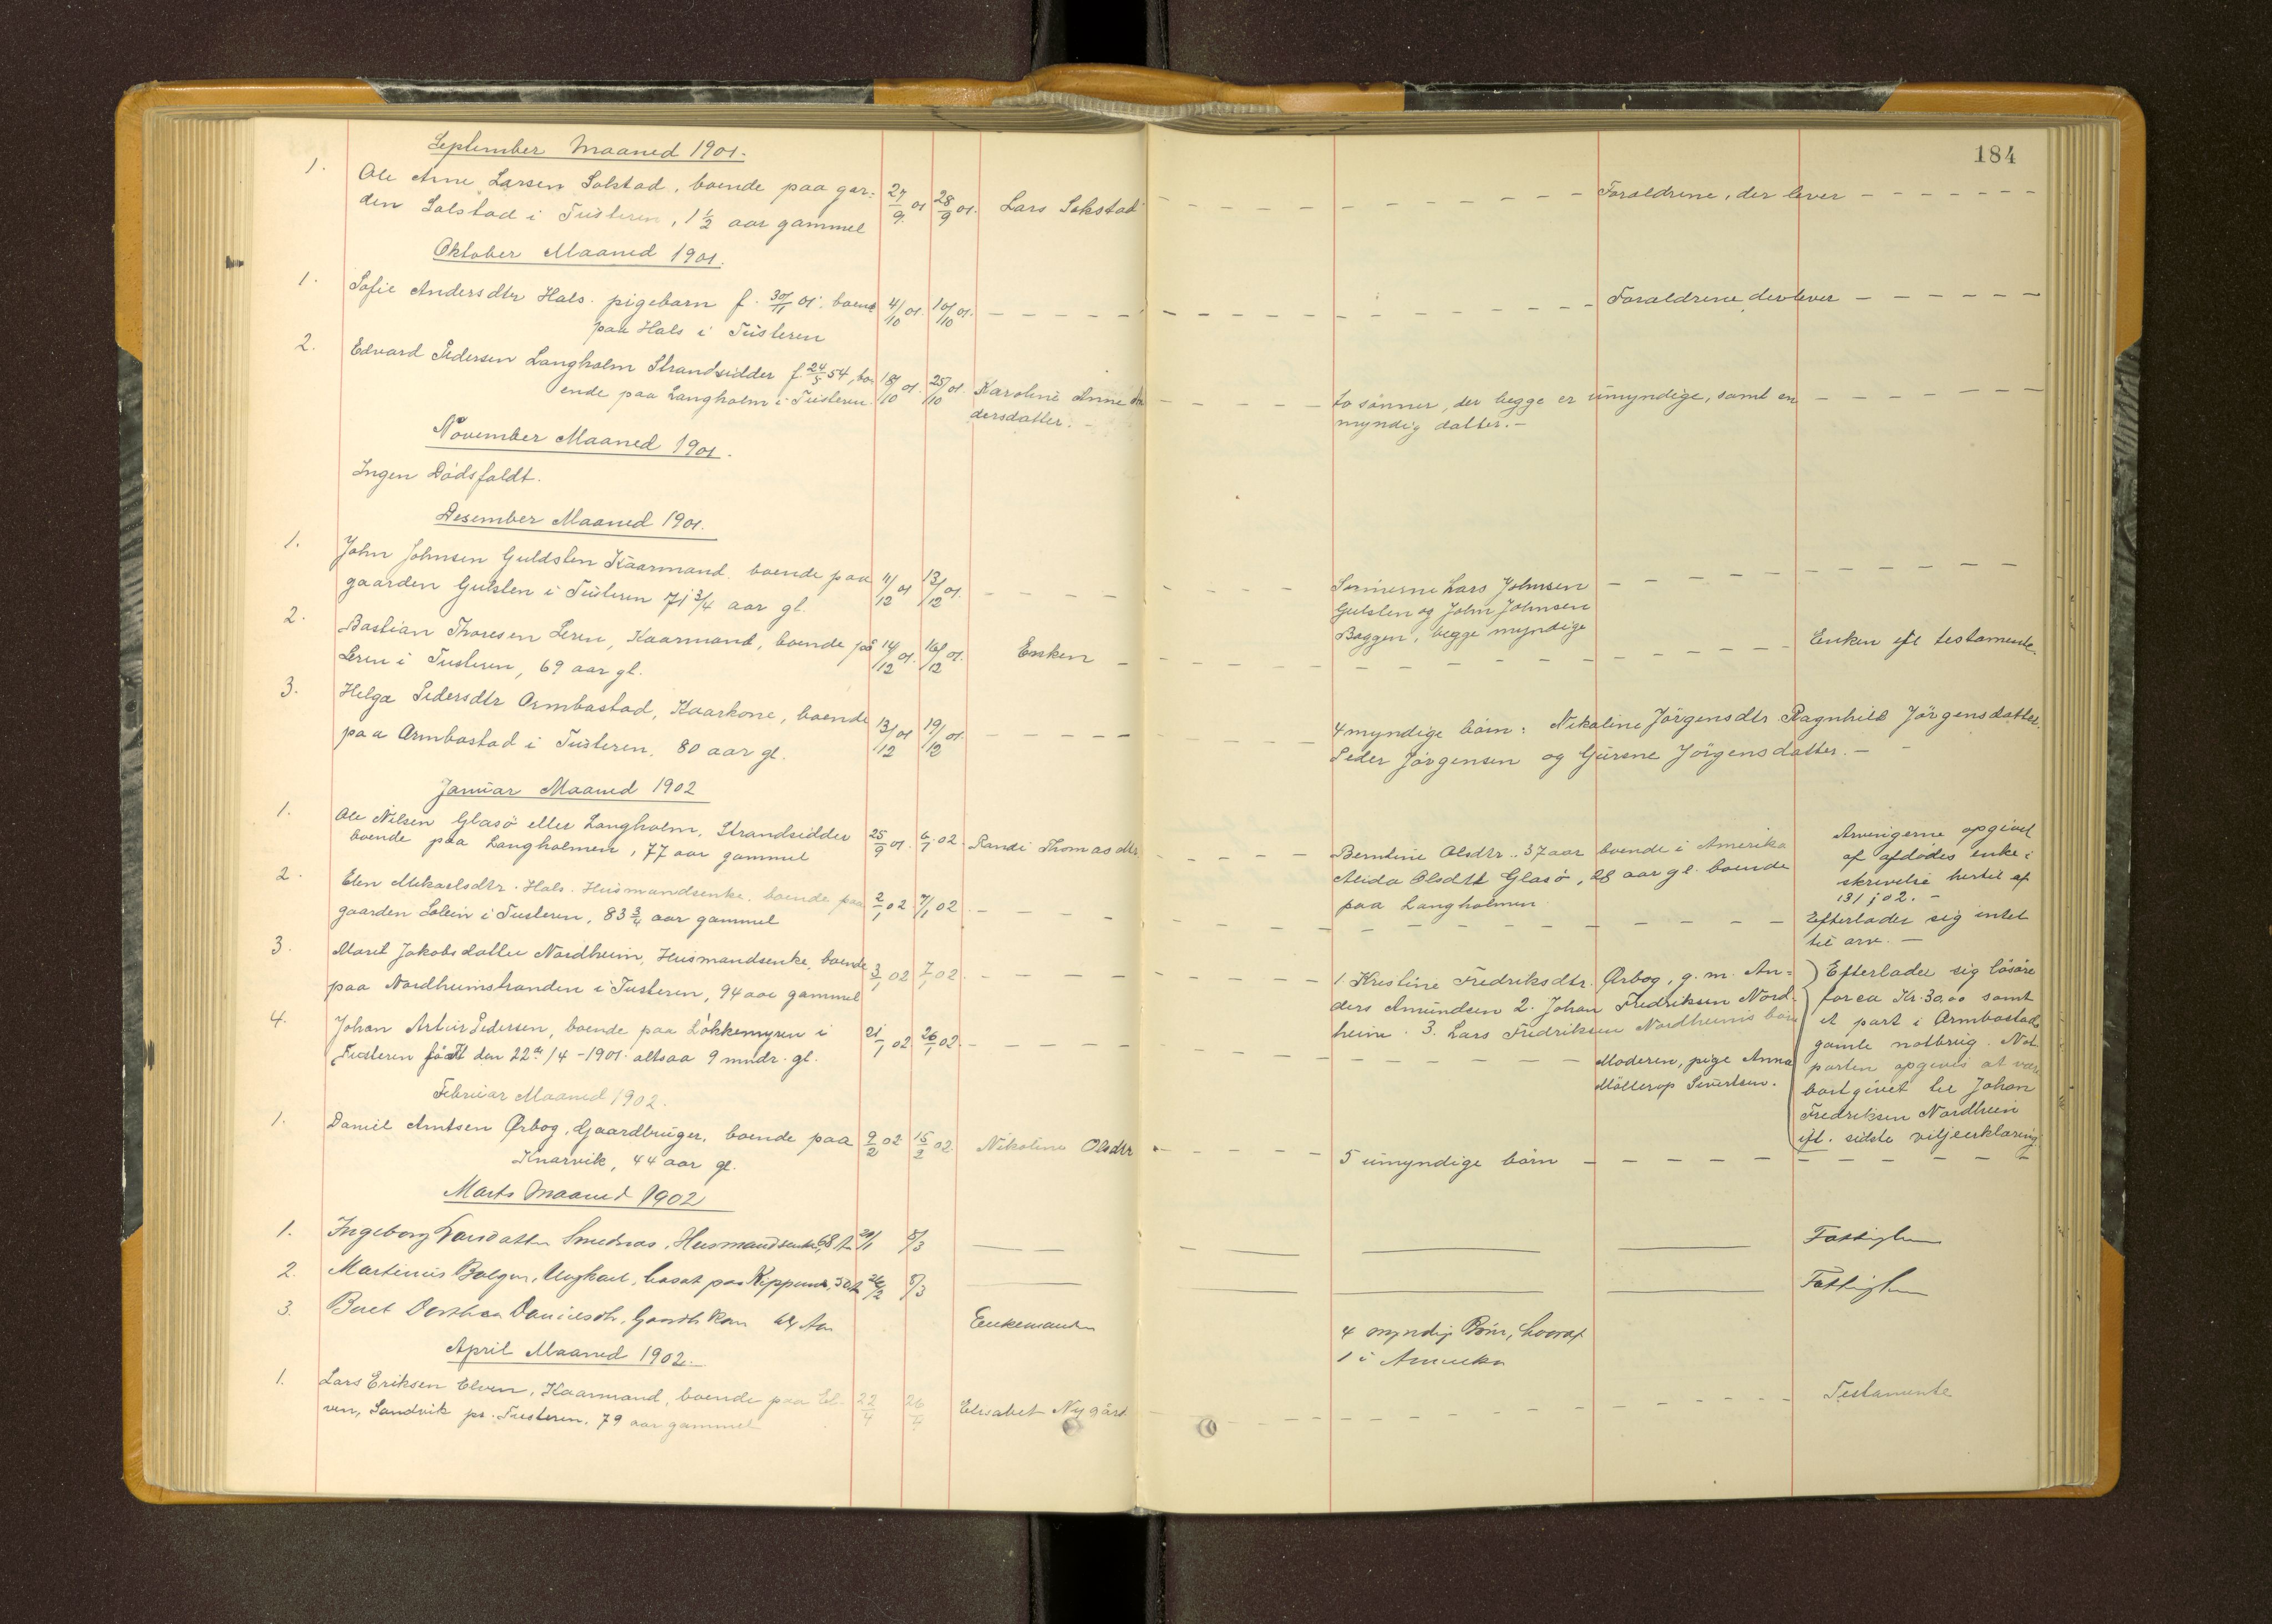 184
September Maaned 1901.
1. Ole Arne Larsen Solstad, boende paa gar- 27/9 01 28/9 01. Lars Solstad Foraldrene, der lever
den Solstad i Tusteren, 1 1/2 aar gammel
Oktober Maaned 1901.
1. Sofie Andersdtr Hals. pigebarn f. 01. boende 4/10 01. 10/10 01. Foraldrene, der lever
paa Hals i Tusteren
2. Edvard Pedersen Langholm Strandsidder f. 24/5 54, bo- 18/10 01. 25/10 01. Karoline Anne An to sønner, der begge er umyndige, samt en
ende paa Langholm i Tusteren. dersdatter. myndig datter.
November Maaned 1901.
Ingen Dødsfaldt.
Desember Maaned 1901.
1. John Johnsen Guldsten Kaarmand, boende paa 11/12 01 13/12 01. Sønnerne Lars Johnsen
gaarden Gulsten i Tusteren 71 3/4 aar gl. Gulsten og John Johnsen
Baggen, begge myndige
2. Bastian Thoresen Leren, Kaarmand, boende på 14/12 01. 16/12 01. Enken Enken ifl testamente.
Leren i Tusteren, 69 aar gl.
3. Helga Pedersdtr Ormbostad, Kaarkone, boende 13/12 01 19/12 01. 4 myndige børn: Nikoline Jørgensdtr Ragnhild Jørgensdatter,
paa Ormbostad i Tusteren, 80 aar gl. Peder Jørgensen og Gurine Jørgensdatter.
Januar Maaned 1902
1. Ole Nilsen Glasø eller Langholm, Strandsidder 25/9 01. 6/1 02. Randi Thomasdtr Berntine Olsdtr.. 37 aar boende i Amerika Arvingerne opgivet
boende paa Langholmen, 77 aar gammel Alida Olsdtr Glasø, 28 aar gl. boende af afdødes enke i
paa Langholmen skrivelse hertil af
13/1 02.
2. Elen Mikaelsdtr. Hals. Husmandsenke, boende paa 2/1 02 7/1 02 Efterlader sig intet
gaarden Solein i Tusteren, 83 3/4 aar gammel til arv.
3. Maret Jakobsdatter Nordheim, Husmandsenke, boende 3/1 02 7/1 02. 1. Kristine Fredriksdtr. Ørbog, g. m. An- Efterlader sig løsøre
paa Nordheimstranden i Tusteren, 94 aar gammel ders Amundsen 2. Johan Fredriksen Nord- for ca Kr. 30.00 samt
heim. 3. Lars Fredriksen Nordheims børn et part i Ormbostads
gamle notbrug. Not-
4. Johan Artur Pedersen, boende paa Løkkemyren i 21/1 02 26/1 02. Moderen, pige Anna parten opgives at være
Tusteren født den 22de/4 - 1901. altsaa 9 mndr. gl. Møllerop Sivertsen. bortgivet til Johan
Fredriksen Nordheim
ifl. sidste viljeerklæring
Februar Maaned 1902.
1. Daniel Arntsen Ørbog, Gaardbruger, boende paa 9/2 02 15/2 02. Nikoline Olsdtr 5 umyndige børn
Knarvik, 44 aar gl.
Marts Maaned 1902
1. Ingeborg Larsdatter Smednas, Husmandsenke, 68 Aar 8/3 Fattiglem
2. Martinus Bolgen, Ungkarl, bosat paa 26/2 8/3 Fattiglem
3. Beret Dorthea Danielsdtr. Enkemanden 4 myndige Børn, hvoraf
1 i Amerika
April Maaned 1902.
1. Lars Eriksen Elven, Kaarmand, boende paa El- 22/4 26/4 Elisabet Nygård Testamente
ven, Sandvik pr. Tusteren. 79 aar gammel